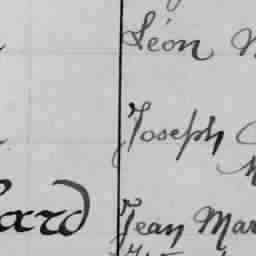 Léon
Joseph
ard
Jean Mar